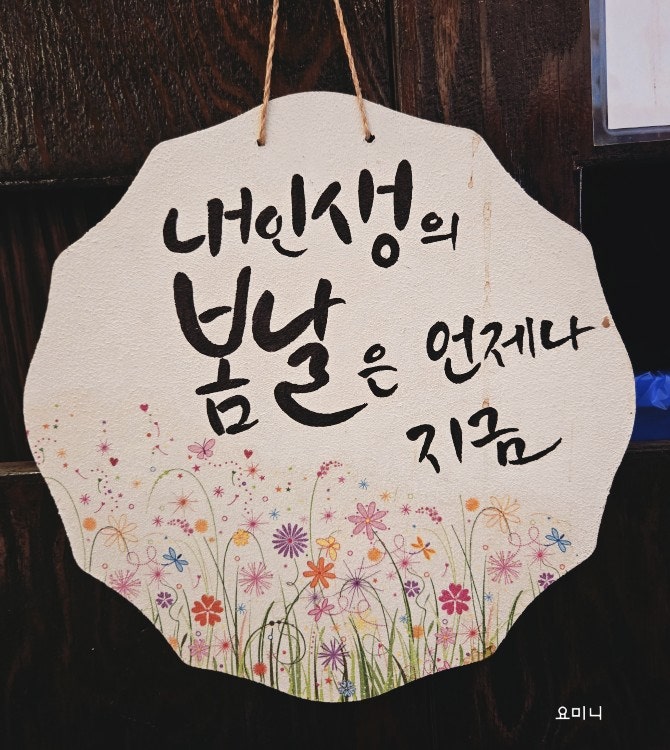 내인생의
봄날은 언제나
지금
요미니